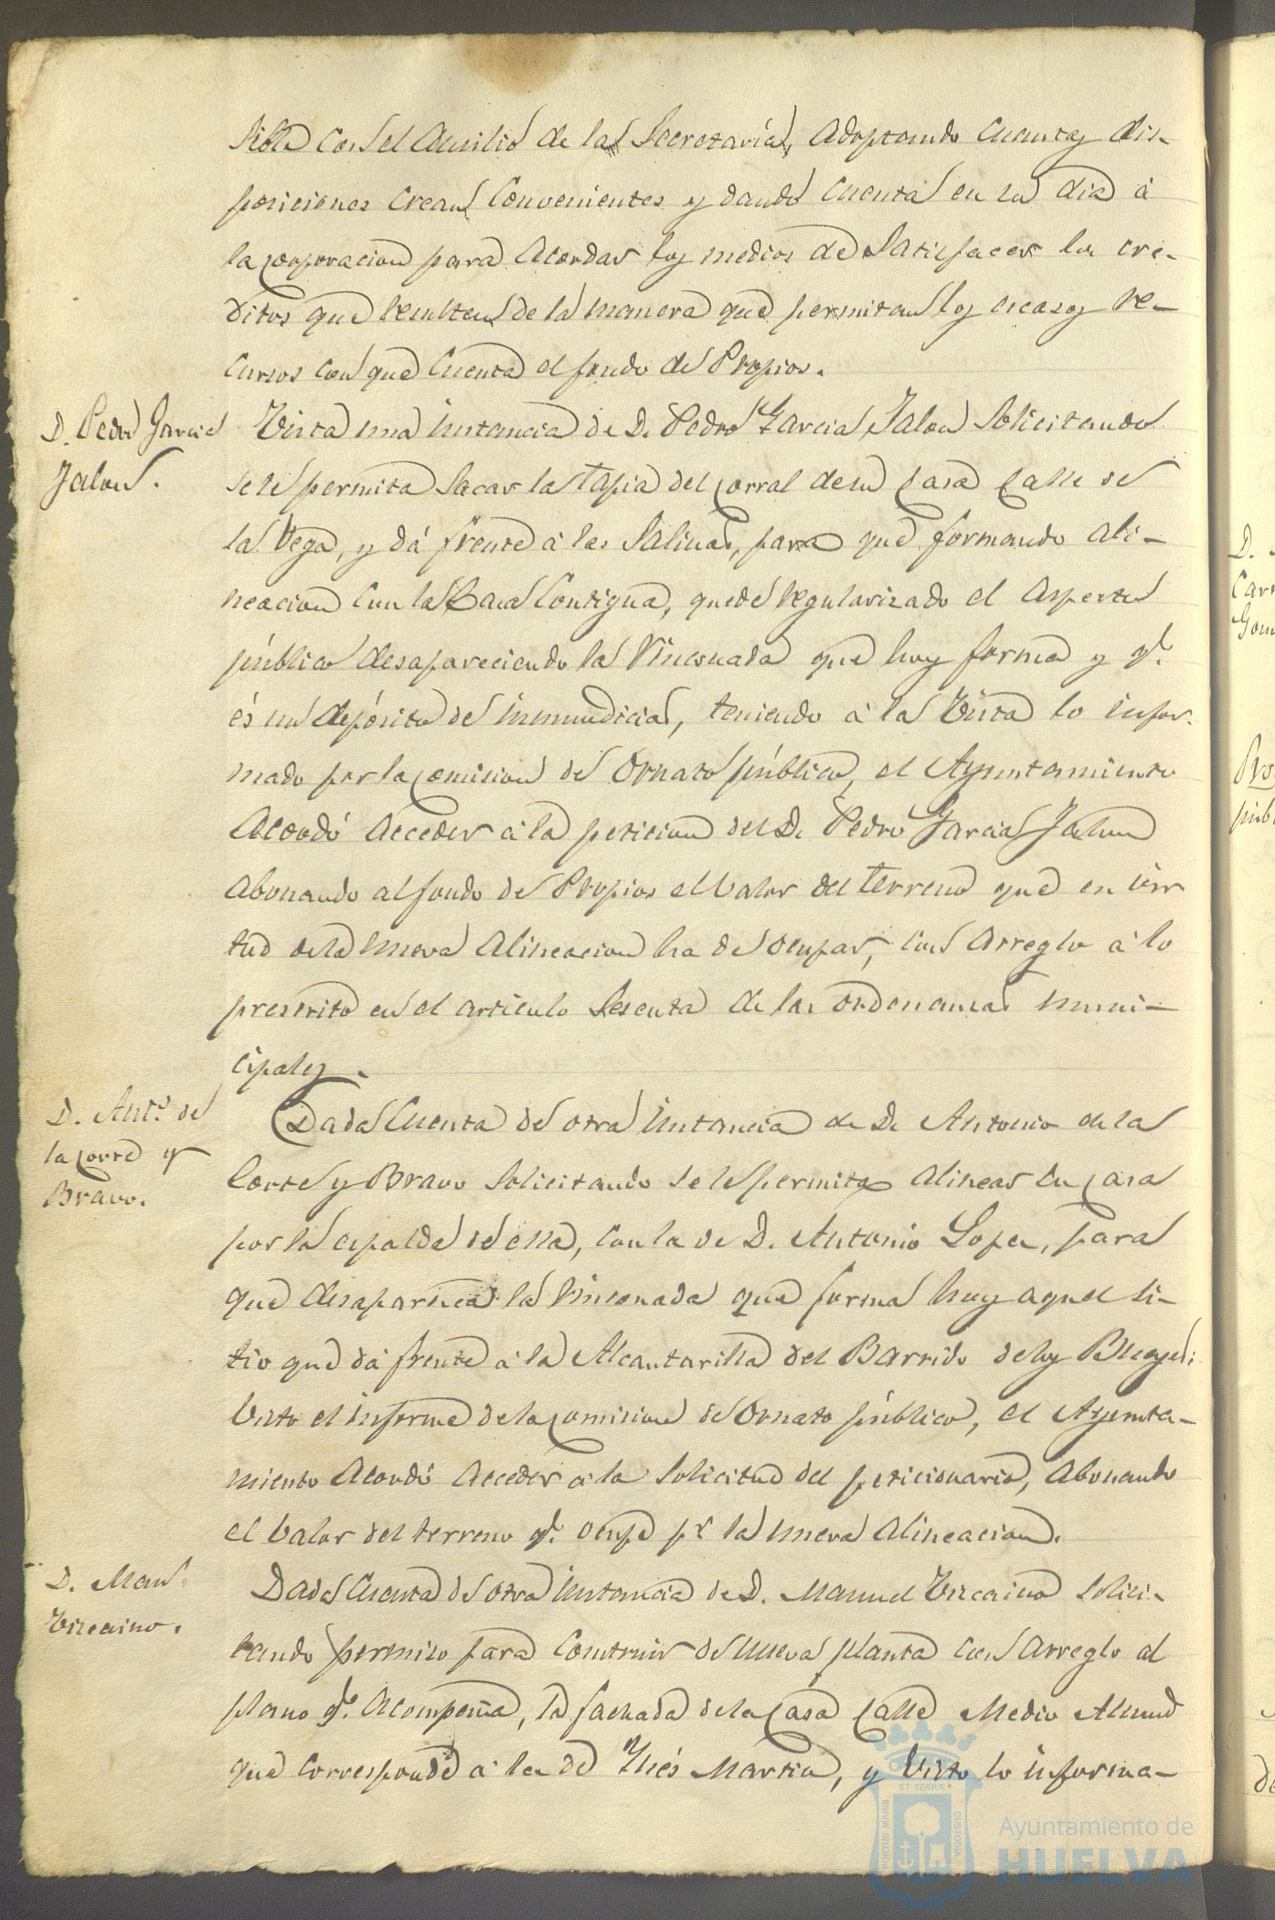 sible con el Ausilio de la Secretaría, Adoptando cuantas dis-
posiciones crean Convenientes y dando Cuenta en su dia á
la Corporacion para Acordar los medios de Satisfacer los cre-
ditos que resulten de la manera que permitan los escasos re-
cursos con que Cuenta el fondo de Propios.
D. Pedro Garcia
Jalon.
Vista una instancia de D. Pedro Garcia Jalon Solicitando
se le permita Sacar la tapia del Corral de su Casa Calle de
la Vega, y dá frente á las Salinas, para que formando Ali-
neacion Con la Casa Contigua, quede regularizado el Aspecto
público desapareciendo la Rinconada que hoy forma y q.e
és un depósito de inmundicias, teniendo á la Vista lo infor-
mado por la Comision de Ornato público, el Ayuntamiento
Acordó Acceder á la peticion del D. Pedro Garcia Jalon
Abonando al fondo de Propios el Valor del terreno que en vir-
tud de la nueva Alineacion ha de Ocupar, con Arreglo á lo
prescrito en el articulo Sesenta de las Ordenanzas muni-
cipales.
D. Ant.o de
la Corte y
Bravo.
Dada Cuenta de otra instancia de D. Antonio de la
Corte y Bravo Solicitando se le permita Alinear su Casa
por la espalda de ella, con la de D. Antonio Lopez, para
que desaparezca la Rinconada que forma hoy aquel si-
tio que dá frente á la Alcantarilla del Barrido de los
Visto el informe de la Comision de Ornato público, el Ayunta-
miento Acordó Acceder á la Solicitud del peticionario, Abonando
el Valor del terreno q.e Ocupe p.r la nueva Alineacion.
D. Man.l
Vizcaino.
Dada Cuenta de otra instancia de D. Manuel Vizcaino Solici-
tando permiso para Construir de nueva planta con Arreglo al
plano q.e Acompaña, la fachada de la Casa Calle Medio Almud
que Corresponde á la de Inés Martin, y Visto lo informa-
D.
Car
Gom
Pro
púb
Ayuntamiento de
HUELVA